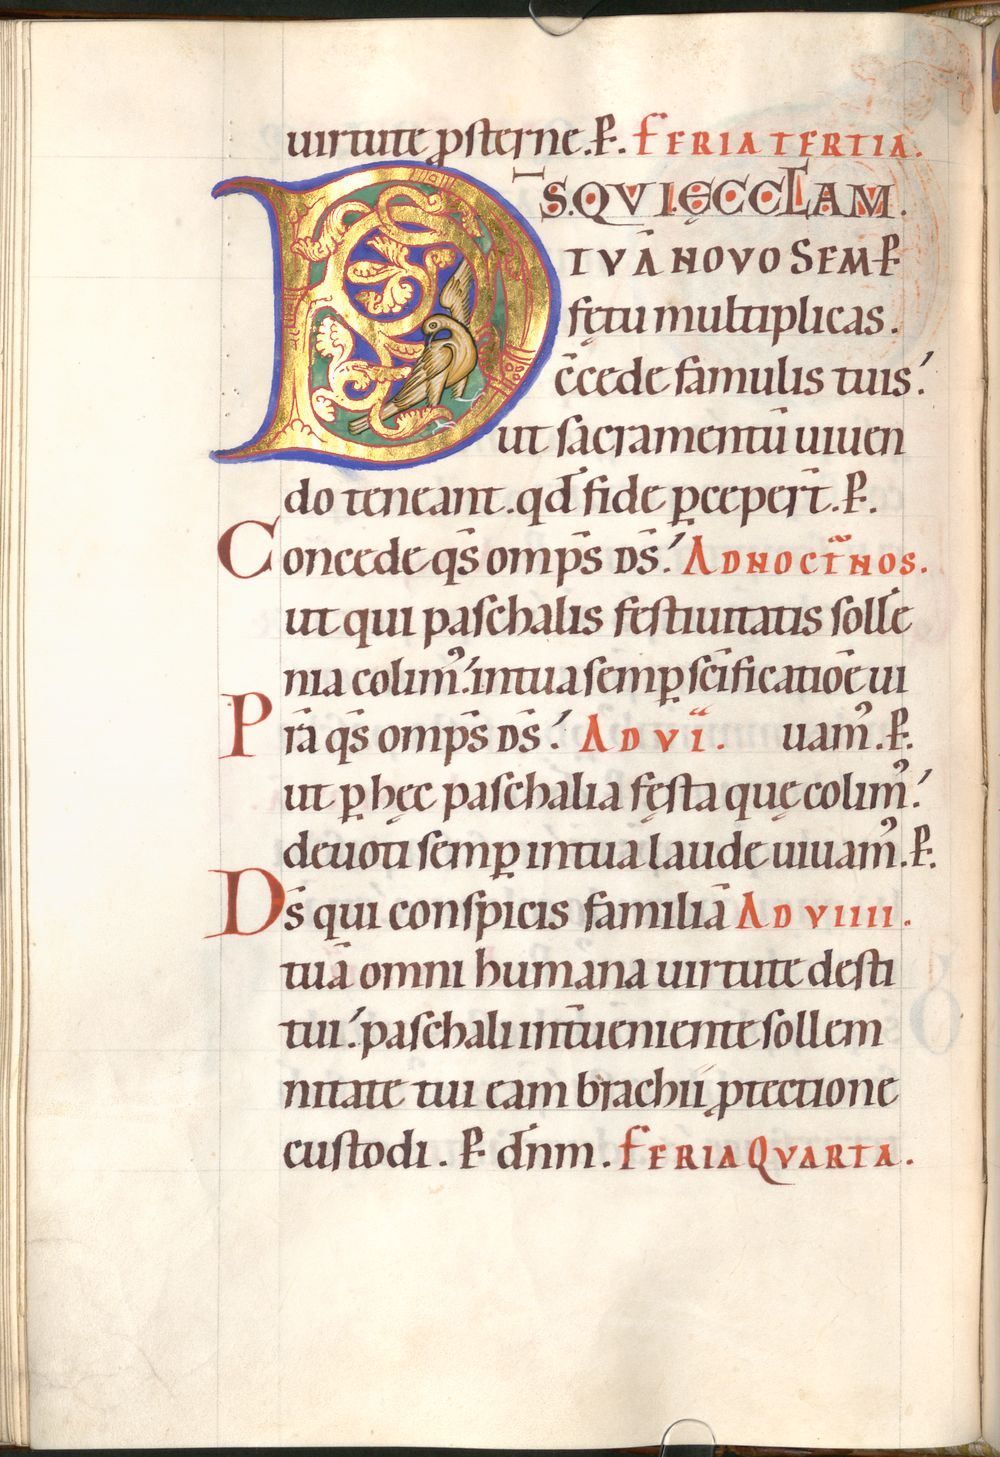 uirtute ꝓsterne. P̲. FERIA TERTIA.
D̅S. QVI ĘCCLAM.
TVĀ NOVO SEMꝑ
fętu multiplicas.
c̄cede famulis tuis.
ut sacramentū uiuen
do teneant. qd̄ fide ꝑceper̄t. P̲.
Concede qs̄ omps̄ ds̄. AD NOCT̄NOS.
ut qui paschalis festiuitatis soll̄e
nia colimꝰ. in tua semꝑ sc̄ificatiōe ui
Pr̄a qs̄ omps̄ ds̄. AD VI. uamꝰ. P̲.
ut ꝑ hęc paschalia fęsta quę colimꝰ.
deuoti semꝑ in tua laude uiuamꝰ. P̲.
Ds̄ qui conspicis familiā AD VIIII.
tuā omni humana uirtute desti
tui. paschali int̄ueniente sollem
nitate tui eam brachii ꝓtectione
custodi. P̲ dn̄m. FERIA QVARTA.